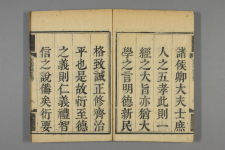 諸侯卿大夫士庶
人之五孝此則一
經之大旨亦猶大
學之言明德新民
格致誠正修齊治
平也是故衍至德
之義則仁義禮智
信之說備矣衍要